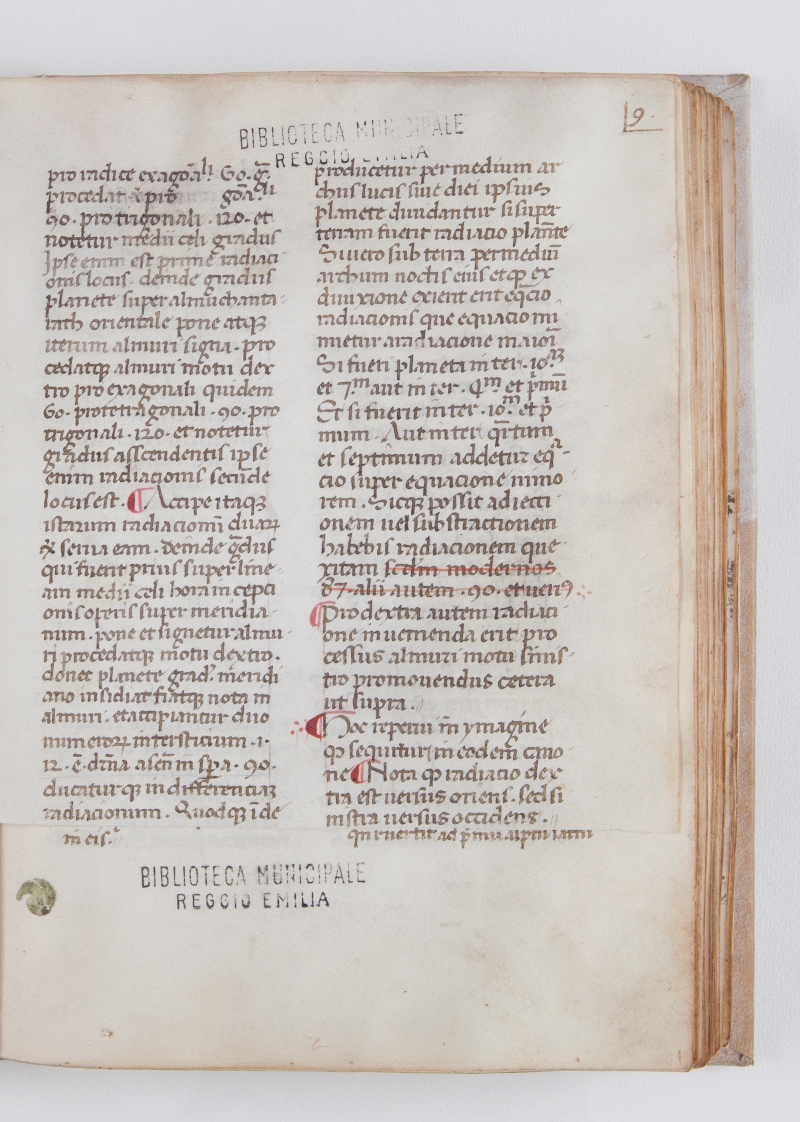 9.
BIBLIOTECA MUNICIPALE
REGGIO EMILIA
pro radice exagoali 60. g
procedat
90. pro trigonali . 120. et
notetur medii celi gradus
Ipse enim est prime radiaci
onis locus. deinde gradus
planete super almuchanta
rath orientale pone atque
iterum almuri signa. pro
cedatque almuri motu dex
tro pro exagonali quidem
60. pro tetragonali . 90. pro
trigonali . 120. et notetur
gradus asscendentis ipse
enim radiacionis secunde
locus est. ¶ Accipe itaque
istarum radiacionum duarum
serua eam. deinde gradus
qui fuerit prius super line
am medii celi hora incepti
onis operis super meridia
num. pone et signetur almu
ri procedatque motu dextro.
donec planete grad. meridi
ano insidiat fiatque nota in
almuri. et accipiantur duo
numerorum intersticium . 1.
12. . 90.
ducaturque in differenciam
radiacionum. Quodque inde
in eis.
producetur per medium ar
chus lucis siue diei ipsius
planete diuidantur si super
terram fuerit radiacio planete
Si uero sub terra per medium
archum noctis eius et quod ex
diuixione exierit erit eqcio
radiacionis que equacio mi
nuetur a radiacione maiori
Si fueri planeta in ter. 10m
et 7m aut in ter. Qm et primum
Et si fuerit in ter. 10m et pri
mum. Aut in ter quartum
et septimum addetur eqa
cio super equacione mino
rem. Sicque possit adiecti
onem uel substractionem
habebis radiacionem que
xitam scdm modernos
87. alii autem . 90. et
¶ Pro dextra autem radiaci
one inuenienda erit pro
cessus almuri motu sinis
tro promouendus cetera
ut supra.
¶ Hoc reperui in ymagine
quod sequitur in eodem cano
ne ¶ Nota quod radiacio dex
tra est uersus oriens. sed si
nistra uersus occidens.
BIBLIOTECA MUNICIPALE
REGGIO EMILIA